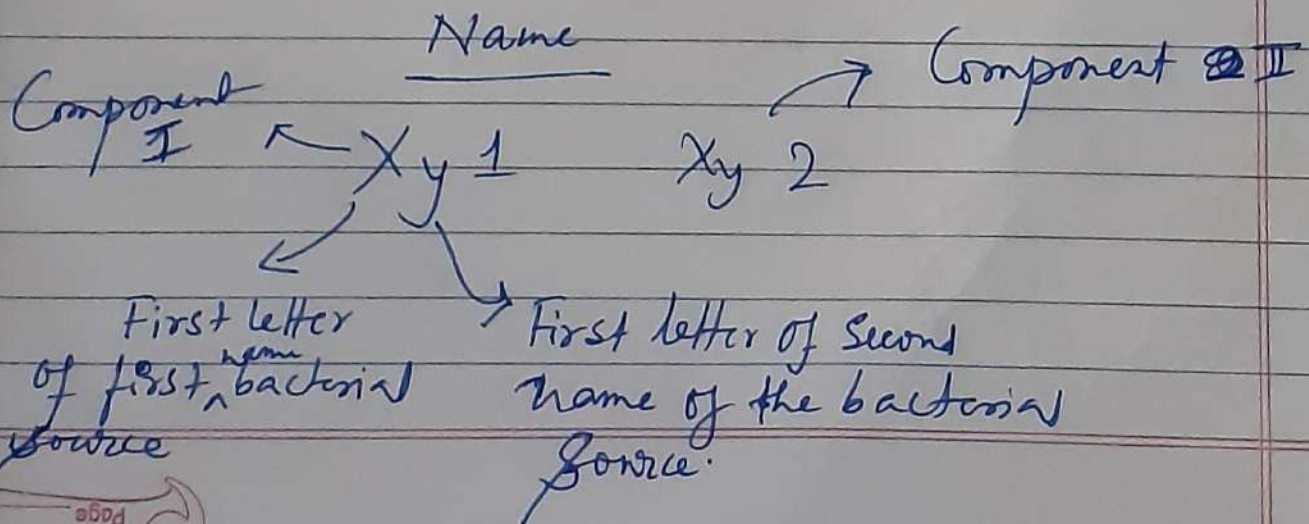 Name
Component I
Component II
Xy 1
Xy 2
First letter
of first name bacterial
source
First letter of Second
name of the bacterial
Source.
Page